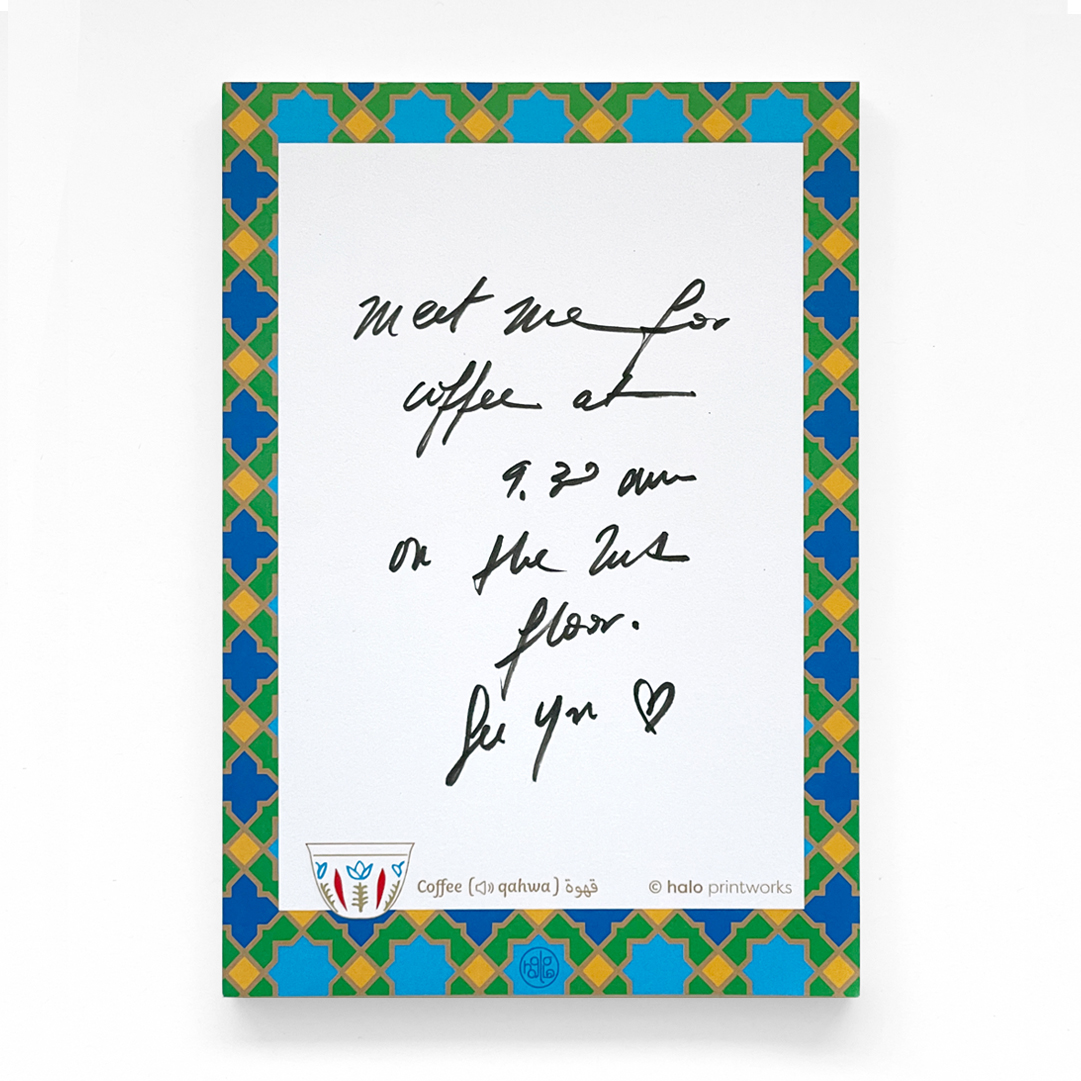 meet me for
coffee at
9.30 am
on the
floor.
See you ♡
Coffee (qahwa) قهوة
© halo printworks
halo